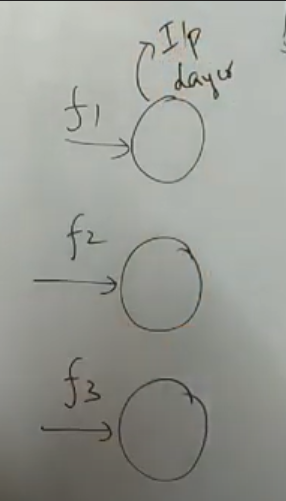 I/p
layer
f1
f2
f3